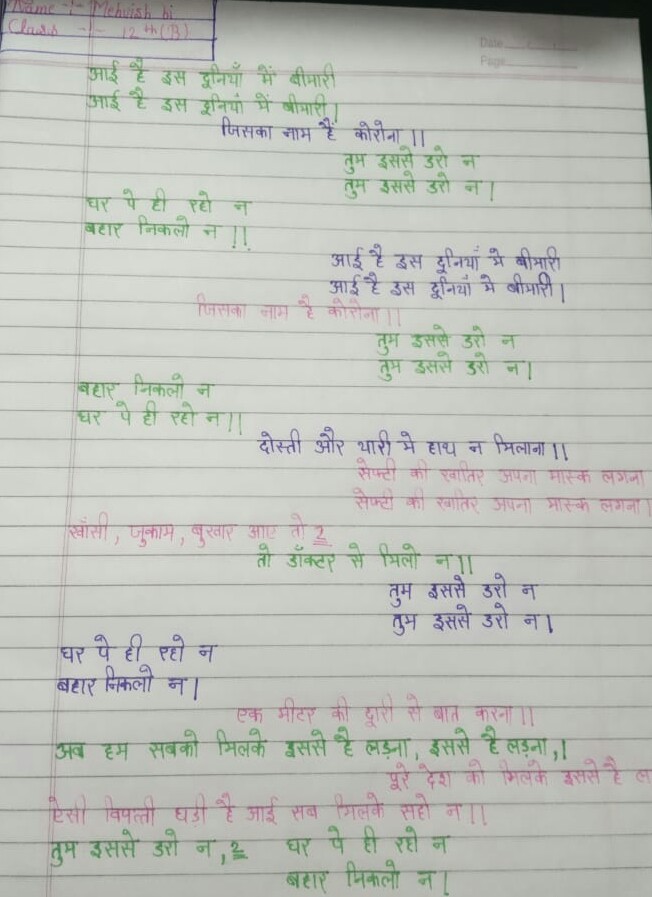 Name :- Mehvish bi
Class :- 12th (B)
Date
Page
आई है इस दूनियाँ में बीमारी
आई है इस दूनियां में बीमारी।
जिसका नाम हैं कोरोना।।
तुम इससे डरो न
तुम इससे डरो न।
घर पे ही रहो न
बहार निकलो न।।
आई है इस दूनियाँ मे बीमारी
आई है इस दूनियाँ मे बीमारी।
जिसका नाम है कोरोना।।
तुम इससे डरो न
तुम इससे डरो न।
बहार निकलो न
घर पे ही रहो न।।
दोस्ती और यारी मे हाथ न मिलाना।।
सेफ्टी की खातिर अपना मास्क लगना
सेफ्टी की खातिर अपना मास्क लगना।
खाँसी, जुकाम, बुखार आए तो 2
तो डॉक्टर से मिलो न।।
तुम इससे डरो न
तुम इससे डरो न।
घर पे ही रहो न
बहार निकलो न।
एक मीटर की दूरी से बात करना।।
अब हम सबको मिलके इससे है लड़ना, इससे है लड़ना,।
पूरे देश को मिलके इससे है ल
ऐसी विपत्ती घड़ी है आई सब मिलके सहो न।।
तुम इससे डरो न, 2 घर पे ही रहो न
बहार निकलो न।